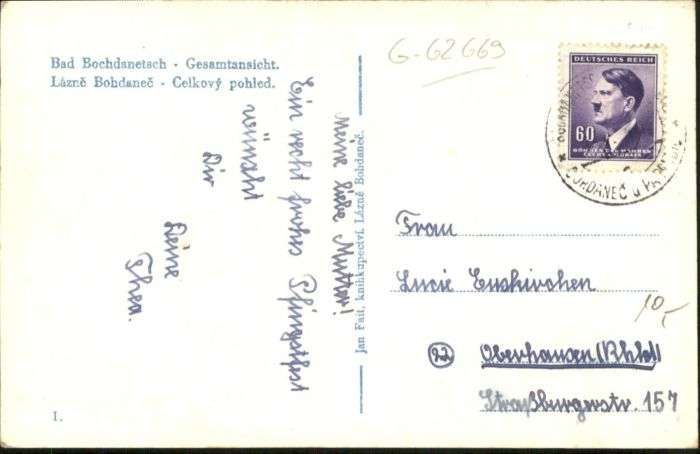 Bad Bochdanetsch - Gesamtansicht.
Lázně Bohdaneč - Celkový pohled.
G-62669
DEUTSCHES REICH
60
BÖHMEN UND MÄHREN
ČECHY A MORAVA
BOHDANEČ u
Meine liebe Mutter!
Ein recht frohes Pfingstfest
wünscht
Dir
Deine
Thea.
Jan Fait, knihkupectví, Lázně Bohdaneč.
Frau
Lucie Euskirchen
10,-
22 Oberhausen (Rhld)
Straßburgerstr. 157
1.